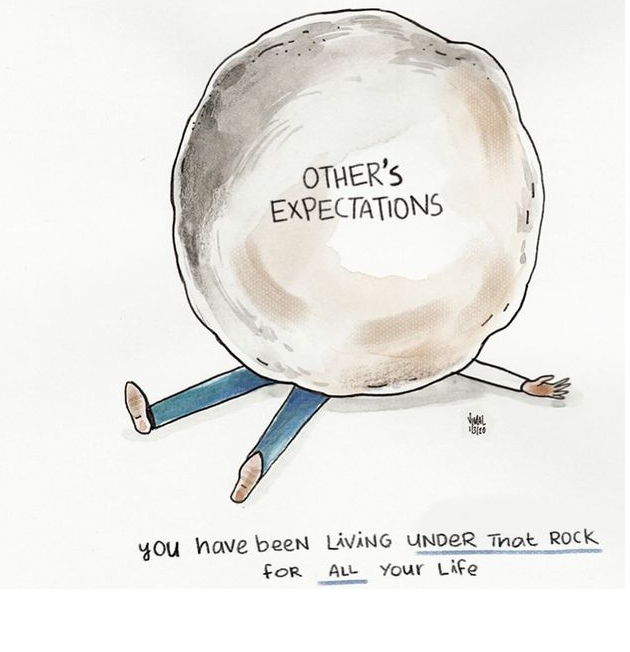 OTHER'S
EXPECTATIONS
VIMAL
1/3/20
you have been LiViNG UNDER That ROCK
FOR ALL Your Life